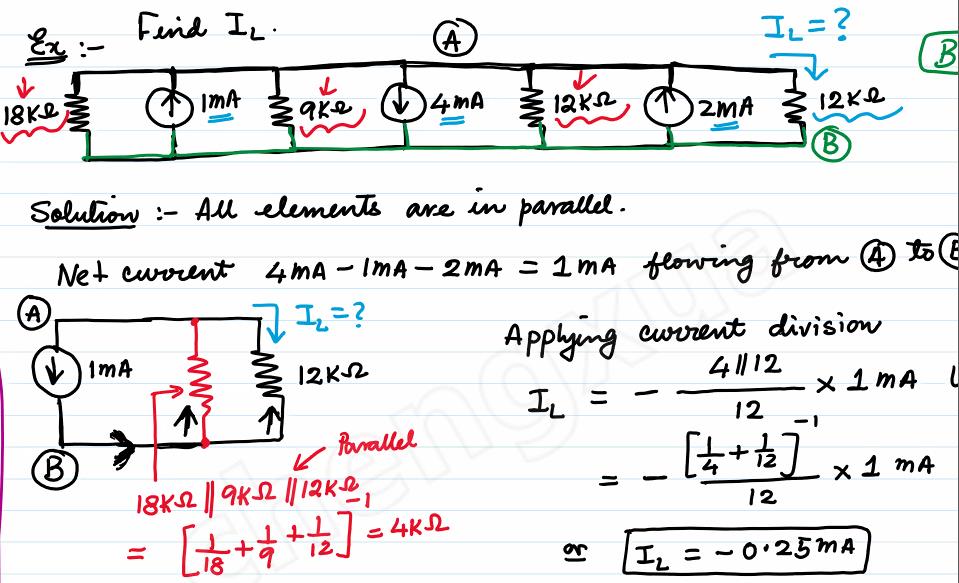 Ex :- Find I_L.
A
I_L = ?
B
18KΩ 1mA 9KΩ 4mA 12KΩ 2mA 12KΩ
B
Solution :- All elements are in parallel.
Net current 4mA - 1mA - 2mA = 1mA flowing from A to B
A
I_L = ?
1mA
12KΩ
B
Parallel
18KΩ || 9KΩ || 12KΩ
= [1/18 + 1/9 + 1/12]^-1 = 4KΩ
Applying current division
I_L = - 4//12 / 12 × 1 mA
= - [1/4 + 1/12]^-1 / 12 × 1 mA
or I_L = -0.25mA